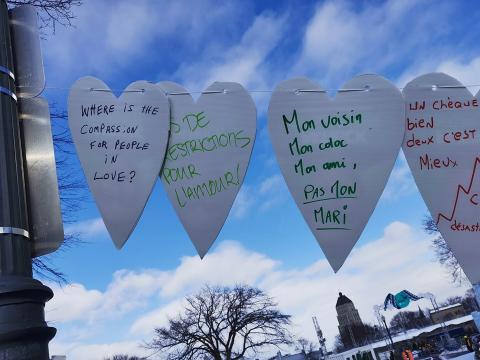 WHERE IS THE
COMPASSION
FOR PEOPLE
IN
LOVE?
S DE
RESTRICTIONS
POUR
L'AMOUR!
Mon voisin
Mon coloc
Mon ami,
PAS MON
MARI
UN Chèque
bien
deux c'est
Mieux
C
désast